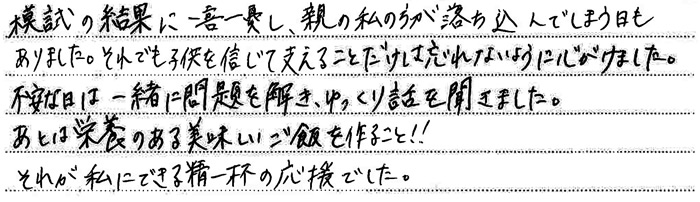 模試の結果に一喜一憂し、親の私の方が落ち込んでしまう日も
ありました。それでも子供を信じて支えることだけは忘れないように心がけました。
不安な日は一緒に問題を解き、ゆっくり話を聞きました。
あとは栄養のある美味しいご飯を作ること!!
それが私にできる精一杯の応援でした。